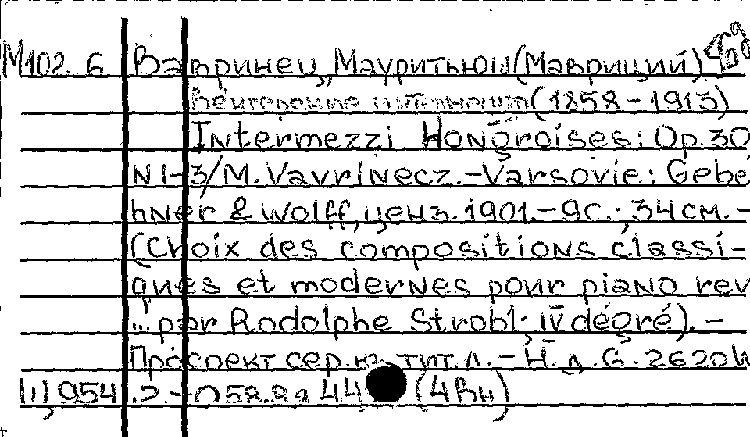 М102.6 Вавринец, Мауритьюш (Мавриций)
(1858-1913)
Intermezzi Hongroises: Op.30
N1-3/M.Vavrinecz.-Varsovie: Gebe
hner & Wolff, ценз. 1901.-9с.; 34см.-
(Choix des compositions classi-
ques et modernes pour piano rev
..." par Rodolphe Strobl; IV degré).-
Проспект сер. на тит.л.-Н.д.G.2620W